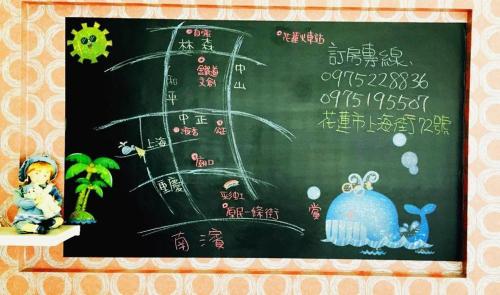 自強
林森
花蓮火車站
鐵道
文創
中山
和平
中正
公正
上海
廟口
重慶
彩虹
原民一條街
南濱
訂房專線、
0975228836
0975195507
花蓮市上海街72號